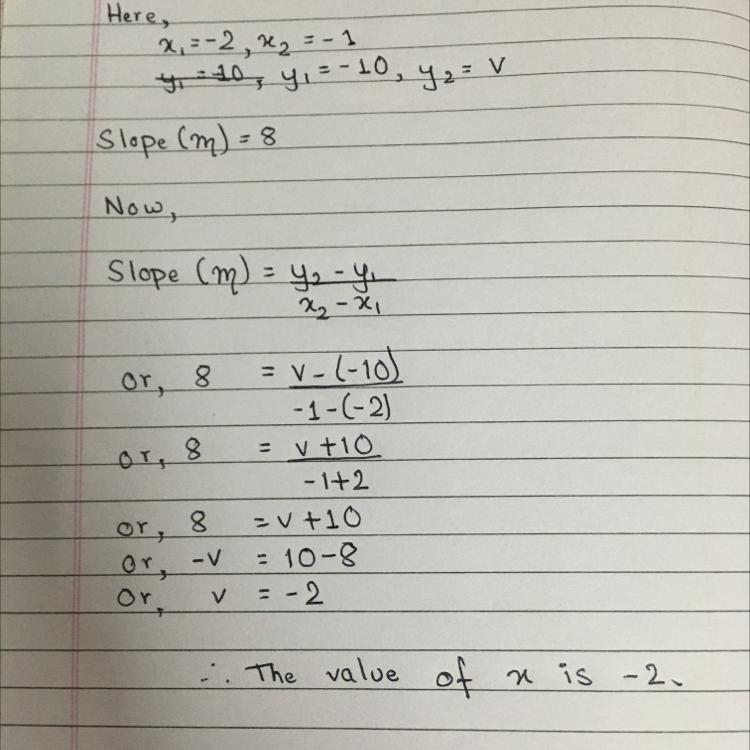 Here,
x₁ = -2, x₂ = -1
y₁ = 10, y₁ = -10, y₂ = v
Slope (m) = 8
Now,
Slope (m) = y₂ - y₁
x₂ - x₁
or, 8 = v - (-10)
-1 - (-2)
or, 8 = v + 10
-1+2
or, 8 = v + 10
or, -v = 10 - 8
or, v = -2
∴ The value of x is -2.